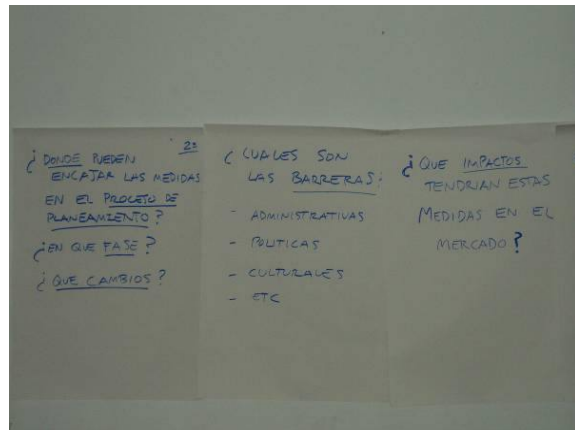 2º
¿ DONDE PUEDEN
ENCAJAR LAS MEDIDAS
EN EL PROCESO DE
PLANEAMIENTO ?
¿EN QUE FASE ?
¿ QUE CAMBIOS ?
¿ CUALES SON
LAS BARRERAS:
- ADMINISTRATIVAS
- POLITICAS
- CULTURALES
- ETC
¿ QUE IMPACTOS
TENDRIAN ESTAS
MEDIDAS EN EL
MERCADO ?